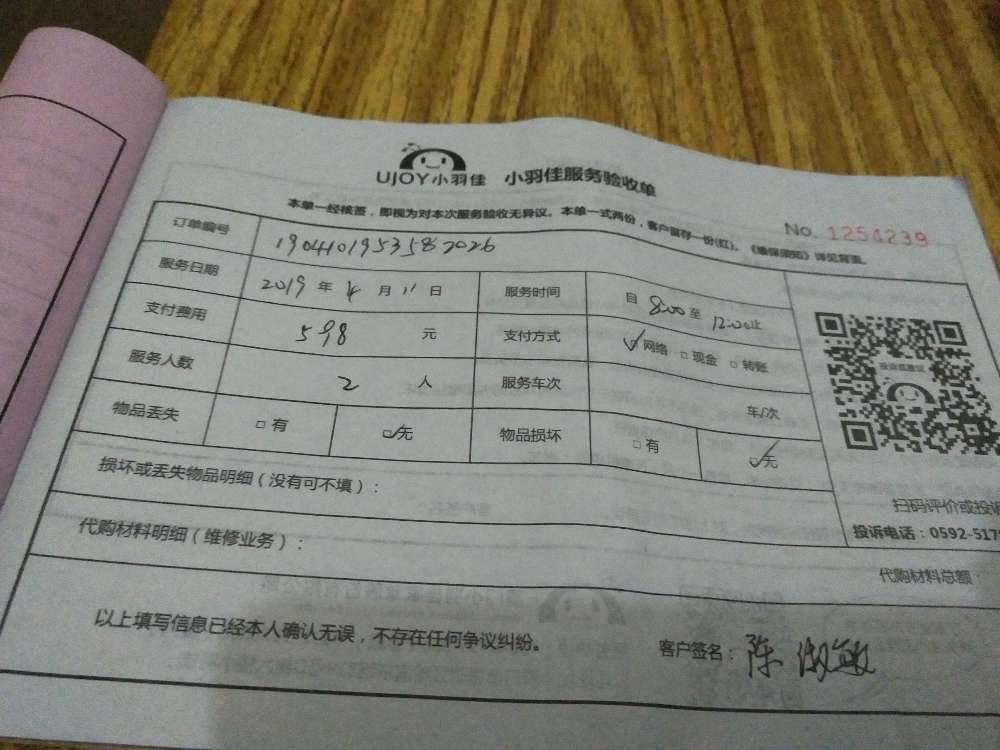 UJOY小羽佳 小羽佳服务验收单
本单一经核签，即视为对本次服务验收无异议。本单一式两份，客户留存一份(红)。《增保须知》详见背面。
No. 1254239
订单编号 190410195358 2026
服务日期 2019 年 4 月 11 日 服务时间 自 8:00 至 12:00止
支付费用 598 元 支付方式 ☑网络 □现金 □转账
服务人数 2 人 服务车次 车/次
物品丢失 □有 ☑无 物品损坏 □有 ☑无
扫码评价或投诉
投诉电话：0592-517
损坏或丢失物品明细（没有可不填）：
代购材料明细（维修业务）：
代购材料总额：
以上填写信息已经本人确认无误，不存在任何争议纠纷。
客户签名：陈淑敏